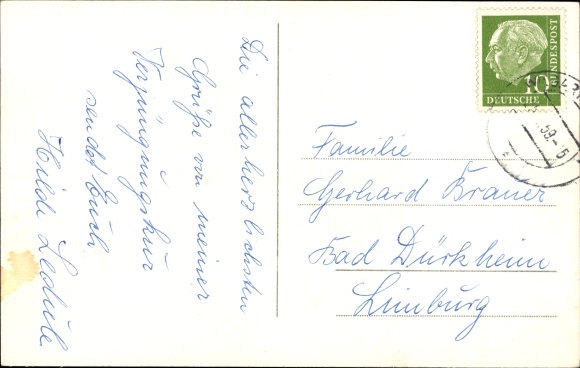 Die allerherzlichsten
Grüße von meiner
Verjüngungskur
sendet Euch
Hilde
DEUTSCHE BUNDESPOST
10
Familie
Gerhard Brauer
Bad Dürkheim
Limburg